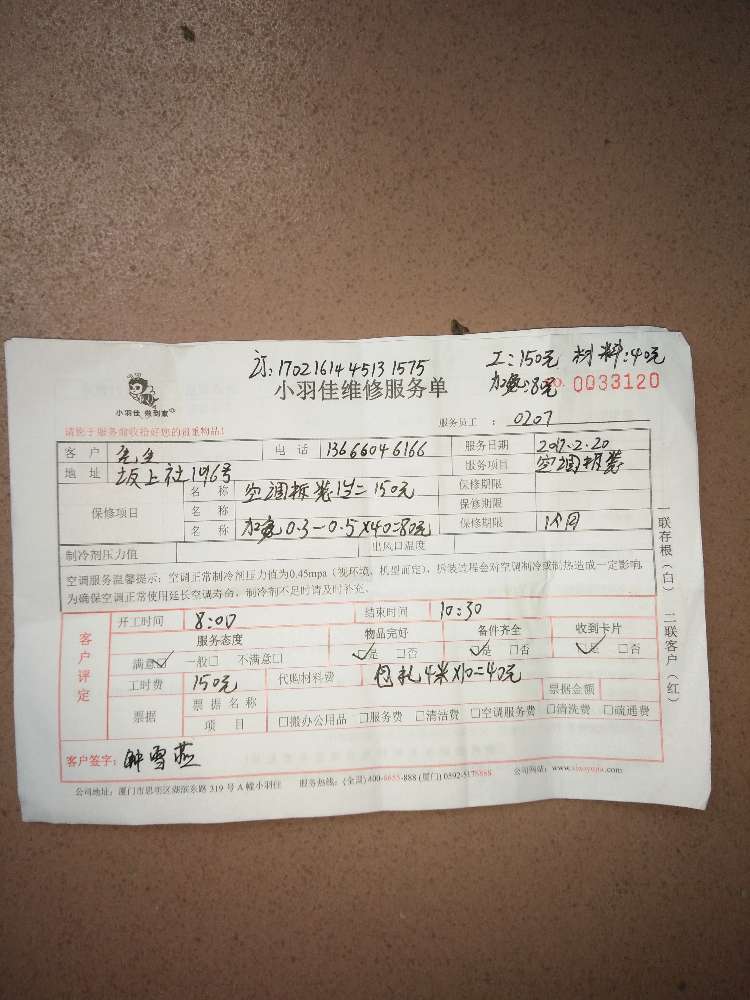 订:1702161445131575 工:150元 材料:40元
小羽佳维修服务单 加氟:80元 NO. 0033120
小羽佳 做到家
请您于服务前收捡好您的贵重物品! 服务员工 : 0207
客 户 先生 电 话 13666046166 服务日期 2017.2.20
地 址 坂上社196号 服务项目 空调拆装
保修项目 名 称 空调拆装 150元 保修期限
名 称 保修期限
名 称 加氟0.3-0.5X40=80元 保修期限 1个月
制冷剂压力值 出风口温度
空调服务温馨提示:空调正常制冷剂压力值为0.45mpa(视环境、机型而定),拆装过程会对空调制冷或制热造成一定影响,
为确保空调正常使用延长空调寿命,制冷剂不足时请及时补充。
一联存根(白) 二联客户(红)
客户评定
开工时间 8:00 结束时间 10:30
服务态度 物品完好 备件齐全 收到卡片
满意☑ 一般□ 不满意□ ☑是 □否 ☑是 □否 ☑是 □否
工时费 150元 代购材料费 包扎4米X10=40元
票据 票据名称 票据金额
项 目 □搬办公用品 □服务费 □清洁费 □空调服务费 □清洗费 □疏通费
客户签字: 钟雪燕
公司地址: 厦门市思明区湖滨东路 319 号 A 幢小羽佳 服务热线: (全国) 400-8655-888 (厦门) 0592-5178888 公司网站: www.xiaoyujia.com